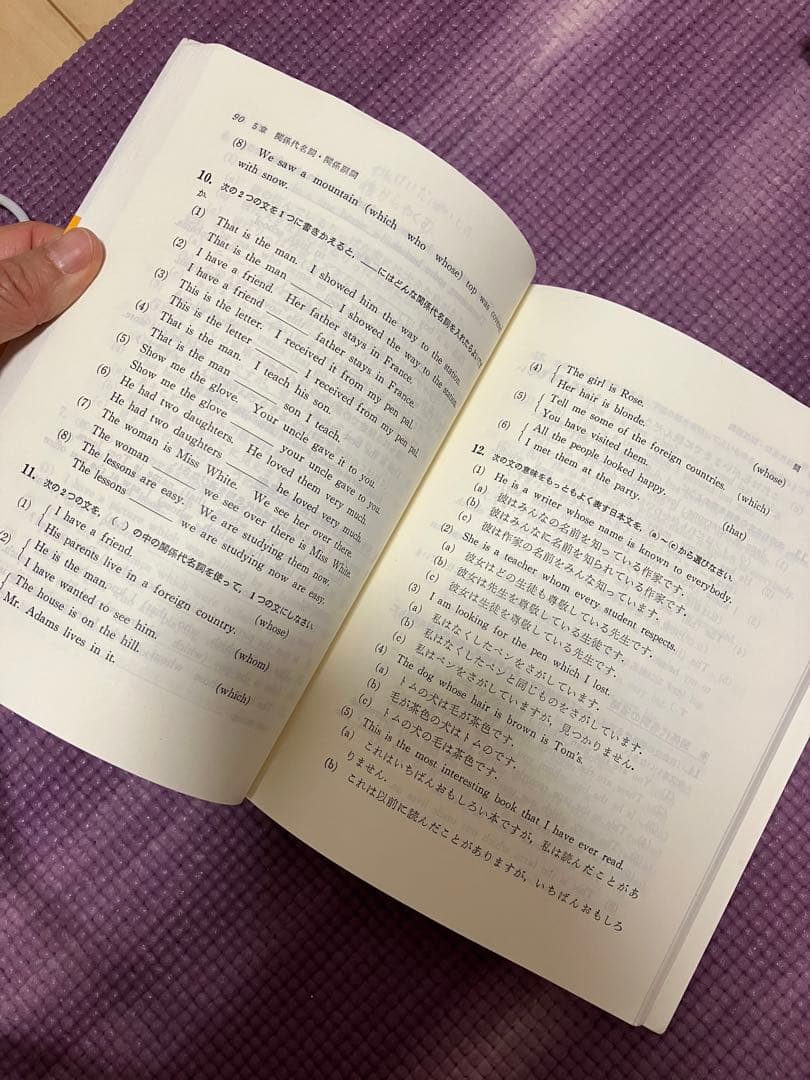 90 5章 関係代名詞・関係副詞
(8) We saw a mountain (which who whose) top was covered
with snow.
10. 次の2つの文を1つに書きかえると，――にはどんな関係代名詞を入れたらよいです
か.
(1) That is the man. I showed him the way to the station.
That is the man ______ I showed the way to the station.
(2) I have a friend. Her father stays in France.
I have a friend ______ father stays in France.
(3) This is the letter. I received it from my pen pal.
This is the letter ______ I received from my pen pal.
(4) That is the man. I teach his son.
That is the man ______ son I teach.
(5) Show me the glove. Your uncle gave it to you.
Show me the glove ______ your uncle gave to you.
(6) He had two daughters. He loved them very much.
He had two daughters ______ he loved very much.
(7) The woman is Miss White. We see her over there.
The woman ______ we see over there is Miss White.
(8) The lessons are easy. We are studying them now.
The lessons ______ we are studying now are easy.
11. 次の2つの文を，( ) の中の関係代名詞を使って，1つの文にしなさい.
(1) I have a friend.
His parents live in a foreign country. (whose)
2) He is the man.
I have wanted to see him. (whom)
The house is on the hill.
Mr. Adams lives in it. (which)
問
(4) The girl is Rose.
Her hair is blonde. (whose)
(5) Tell me some of the foreign countries.
You have visited them. (which)
(6) All the people looked happy.
I met them at the party. (that)
12. 次の文の意味をもっともよく表す日本文を，(a)～(c)から選びなさい.
(1) He is a writer whose name is known to everybody.
(a) 彼はみんなの名前を知っている作家です.
(b) 彼はみんなに名前を知られている作家です.
(c) 彼は作家の名前をみんな知っています.
(2) She is a teacher whom every student respects.
(a) 彼女はどの生徒も尊敬している先生です.
(b) 彼女は先生を尊敬している生徒です.
(c) 彼女は生徒を尊敬している先生です.
(3) I am looking for the pen which I lost.
(a) 私はなくしたペンをさがしています.
(b) 私はなくしたペンと同じものをさがしています.
(c) 私はペンをさがしていますが，見つかりません.
(4) The dog whose hair is brown is Tom's.
(a) トムの犬は毛が茶色です.
(b) 毛が茶色の犬はトムのです.
(c) トムの犬の毛は茶色です.
(5) This is the most interesting book that I have ever read.
(a) これはいちばんおもしろい本ですが，私は読んだことがあ
りません.
(b) これは以前に読んだことがありますが，いちばんおもしろ